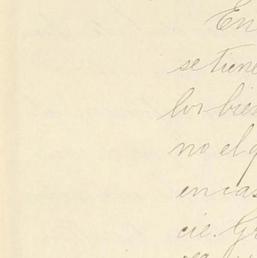 En
se tiene
los bien
no el q
en cas
cie. Gr